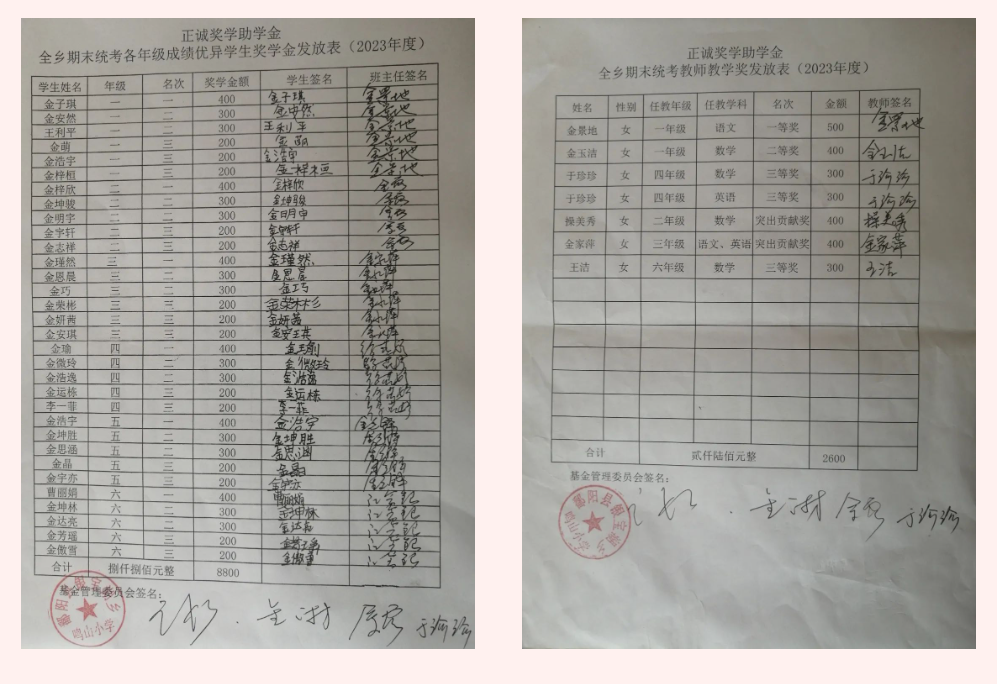 正诚奖学助学金
全乡期末统考各年级成绩优异学生奖学金发放表（2023年度）
学生姓名 年级 名次 奖学金额 学生签名 班主任签名
金子琪 一 一 400 金子琪 金景地
金安然 一 二 300 金安然 金景地
王利平 一 二 300 王利平 金景地
金萌 一 三 200 金萌 金景地
金浩宇 一 三 200 金浩宇 金景地
金梓桓 一 三 200 金梓桓 金景地
金梓欣 二 一 400 金梓欣
金坤骏 二 二 300 金坤骏
金明宇 二 二 300 金明宇
金宇轩 二 三 200 金宇轩
金志祥 二 三 200 金志祥
金瑾然 三 一 400 金瑾然
金思晨 三 二 300 金思晨
金巧 三 二 300 金巧
金荣彬 三 三 200 金荣彬
金妍茜 三 三 200 金妍茜
金安琪 三 三 200 金安琪
金瑜 四 一 400
金微玲 四 二 300 金微玲
金浩逸 四 二 300 金浩逸
金运栋 四 三 200 金运栋
李一菲 四 三 200 李一菲
金浩宇 五 一 400 金浩宇
金坤胜 五 二 300 金坤胜
金思涵 五 二 300 金思涵
金晶 五 三 200 金晶
金宇亦 五 三 200 金宇亦
曹丽娟 六 一 400 曹丽娟
金坤林 六 二 300 金坤林
金达亮 六 二 300 金达亮
金芳瑶 六 三 200
金傲雪 六 三 200 金傲雪
合计 捌仟捌佰元整 8800
基金管理委员会签名：
于珍珍
鸣山小学
正诚奖学助学金
全乡期末统考教师教学奖发放表（2023年度）
姓名 性别 任教年级 任教学科 名次 金额 教师签名
金景地 女 一年级 语文 一等奖 500 金景地
金玉洁 女 一年级 数学 二等奖 400 金玉洁
于珍珍 女 四年级 数学 三等奖 300 于珍珍
于珍珍 女 四年级 英语 三等奖 300 于珍珍
操美秀 女 二年级 数学 突出贡献奖 400 操美秀
金家萍 女 三年级 语文、英语 突出贡献奖 400 金家萍
王洁 女 六年级 数学 三等奖 300 王洁
合计 贰仟陆佰元整 2600
基金管理委员会签名：
于珍珍
鸣山小学